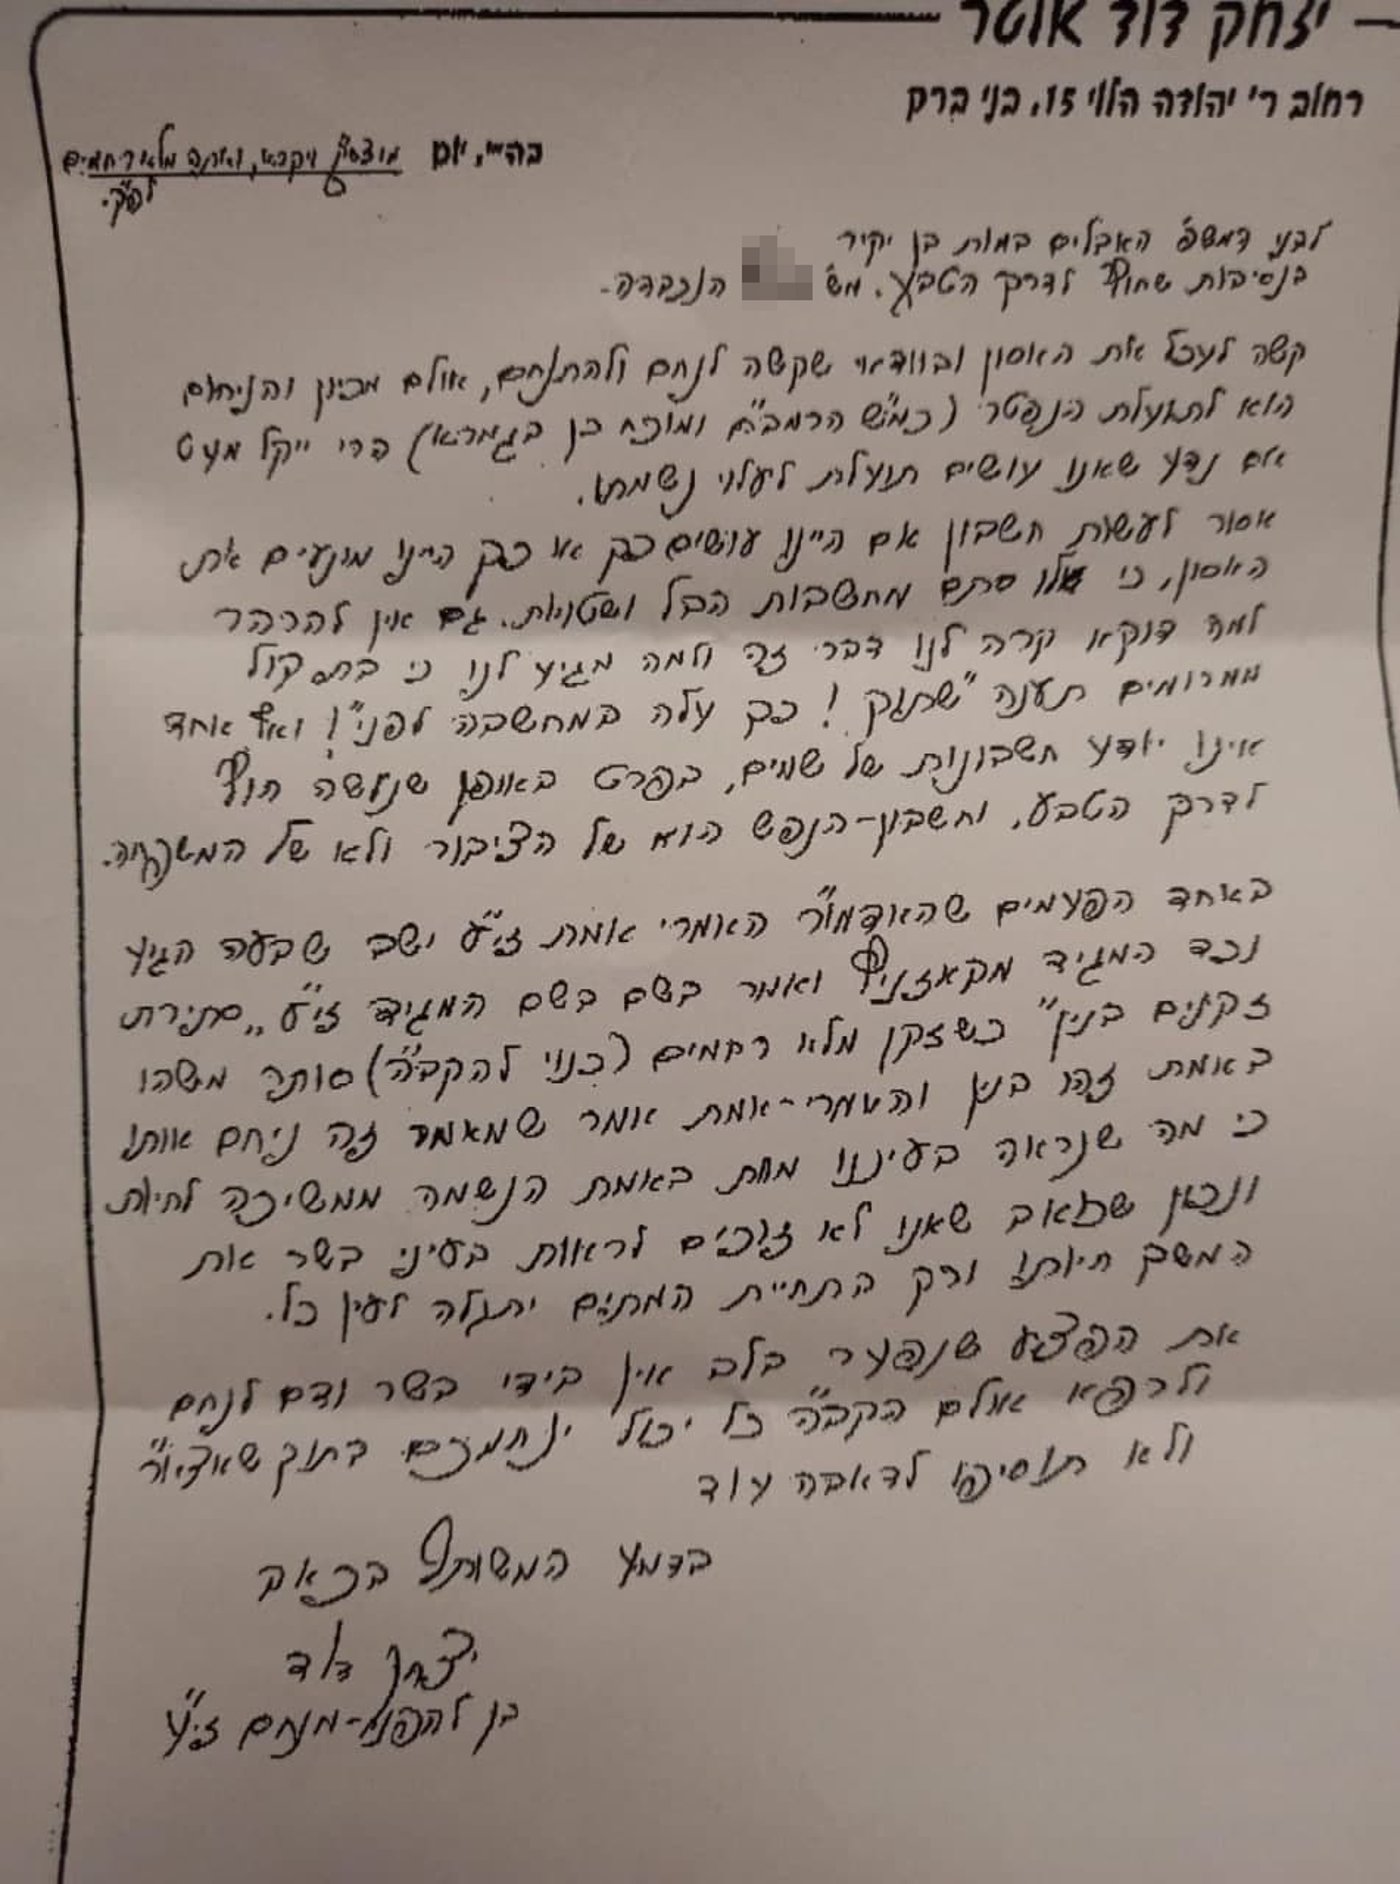 יצחק דוד אלטר
רחוב ר' יהודה הלוי 15, בני ברק
בהי"ת, יום מוצש"ק ויקרא, ואתה מלא רחמים
לפ"ק.
לבני המשפ' האבלים במות בן יקיר
בנסיבות שחוץ לדרך הטבע. מש' הנכבדה -
קשה לעכל את האסון ובוודאי שקשה לנחם ולהתנחם, אולם מכיון והניחום
הוא לתועלת הנפטר (כמ"ש הרמב"ם ומוכח כן בגמרא) הרי ייקל מעט
אם נדע שאנו עושים תועלת לעילוי נשמתו.
אסור לעשות חשבון אם היינו עושים כך או כך היינו מונעים את
האסון, כי אלו סתם מחשבות הבל ושטויות. גם אין להרהר
למה דוקא קרה לנו דבר זה ולמה מגיע לנו כי בת קול
ממרומים תענה "שתוק! כך עלה במחשבה לפני"! ואף אחד
אינו יודע חשבונות של שמים, בפרט באופן שנעשה חוץ
לדרך הטבע. וחשבון-הנפש הוא של הציבור ולא של המשפחה.
באחד הפעמים שהאדמו"ר האמרי אמת זי"ע ישב שבעה הגיע
נכד המגיד מקאזניץ ואמר בשם בשם המגיד זי"ע "סתירת
זקנים בנין" כשזקן מלא רחמים (כנוי להקב"ה) סותר משהו
באמת זהו בנין והאמרי-אמת אמר שמאמר זה ניחם אותו
כי מה שנראה בעיננו מות באמת הנשמה ממשיכה לחיות
ונכון שכואב שאנו לא זוכים לראות בעיני בשר את
המשך חיותו ורק בתחיית המתים יתגלה לעין כל.
את הפצע שנפער בלב אין בידי בשר ודם לנחם
ולרפא אולם הקב"ה כל יכול ינחמכם בתוך שאצי"ור
ולא תוסיפו לדאבה עוד
בדמע המשותף בכאב
יצחק דוד
בן להפני-מנחם זי"ע